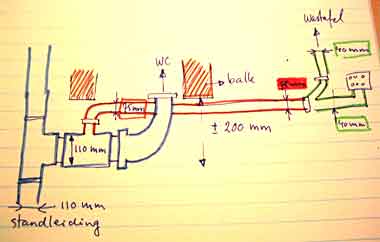 Wastafel
WC
40 mm
balk
75 mm
± 200 mm
110 mm
40 mm
110 mm
standleiding